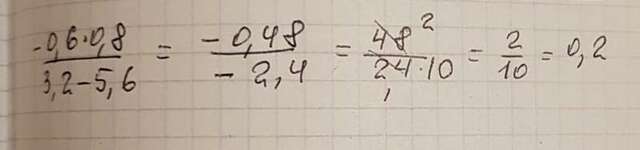 -0,6·0,8 / 3,2-5,6 = -0,48 / -2,4 = 48² / 24·10 = 2/10 = 0,2